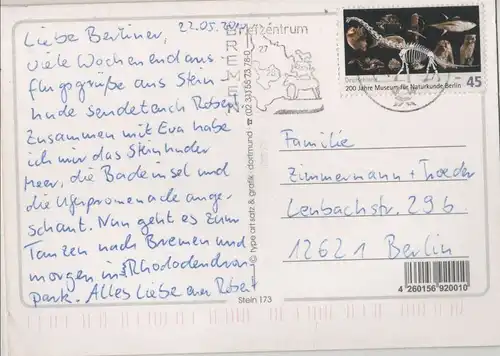 Liebe Berliner, 22.05.20
viele Wochenendaus-
flugsgrüße aus Stein
hude sendet euch Robert.
Zusammen mit Eva habe
ich mir das Steinhuder
Meer, die Badeinsel und
die Uferpromenade ange-
schaut. Nun geht es zum
Tanzen nach Bremen und
morgen ins Rhododendron
park. Alles Liebe euer Robert
Briefzentrum
BREMEN
27
Deutschland
200 Jahre Museum für Naturkunde Berlin
45
© type art satz & grafik · dortmund · ☎ (02 33) 56 73 78-0
Familie
Zimmermann + Troeder
Lenbachstr. 29b
12621 Berlin
4 260156 920010
Stein 173